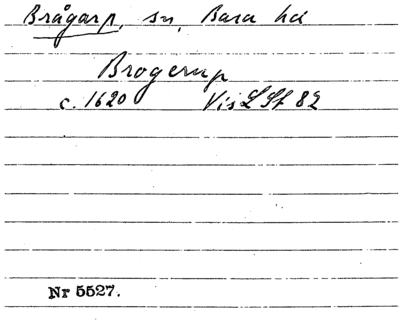 Brågarp, sn, Bara hd
Brogerup
c. 1620 Vis L St 82
Nr 5527.